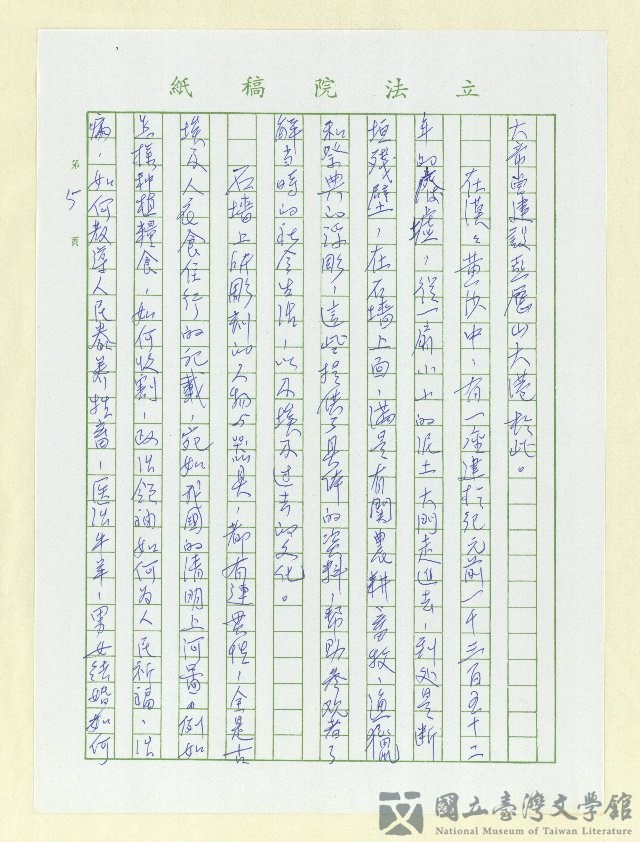 立法院稿紙
大帝曾建設亞歷山大港於此。
在漠々黃沙中，有一座建於紀元前一千三百五十二
年的廢墟，從一扇小小的泥土大門走進去，到处是断
垣殘壁，在石墙上面，滿是有関農耕、畜牧、漁獵
和祭典的浮彫，這些提供了具体的資料，帮助参观者了
解当時的社会生活，以及埃及过去的文化。
石墙上所彫刻的人物与器具，都有連貫性，全是古
埃及人衣食住行的記載，宛如我國的清明上河圖。例如
怎樣种植糧食，如何收割，政治領袖如何为人民祈福、治
病，如何教導人民豢养牲畜，医治牛羊，男女結婚如何
第5頁
國立臺灣文學館
National Museum of Taiwan Literature